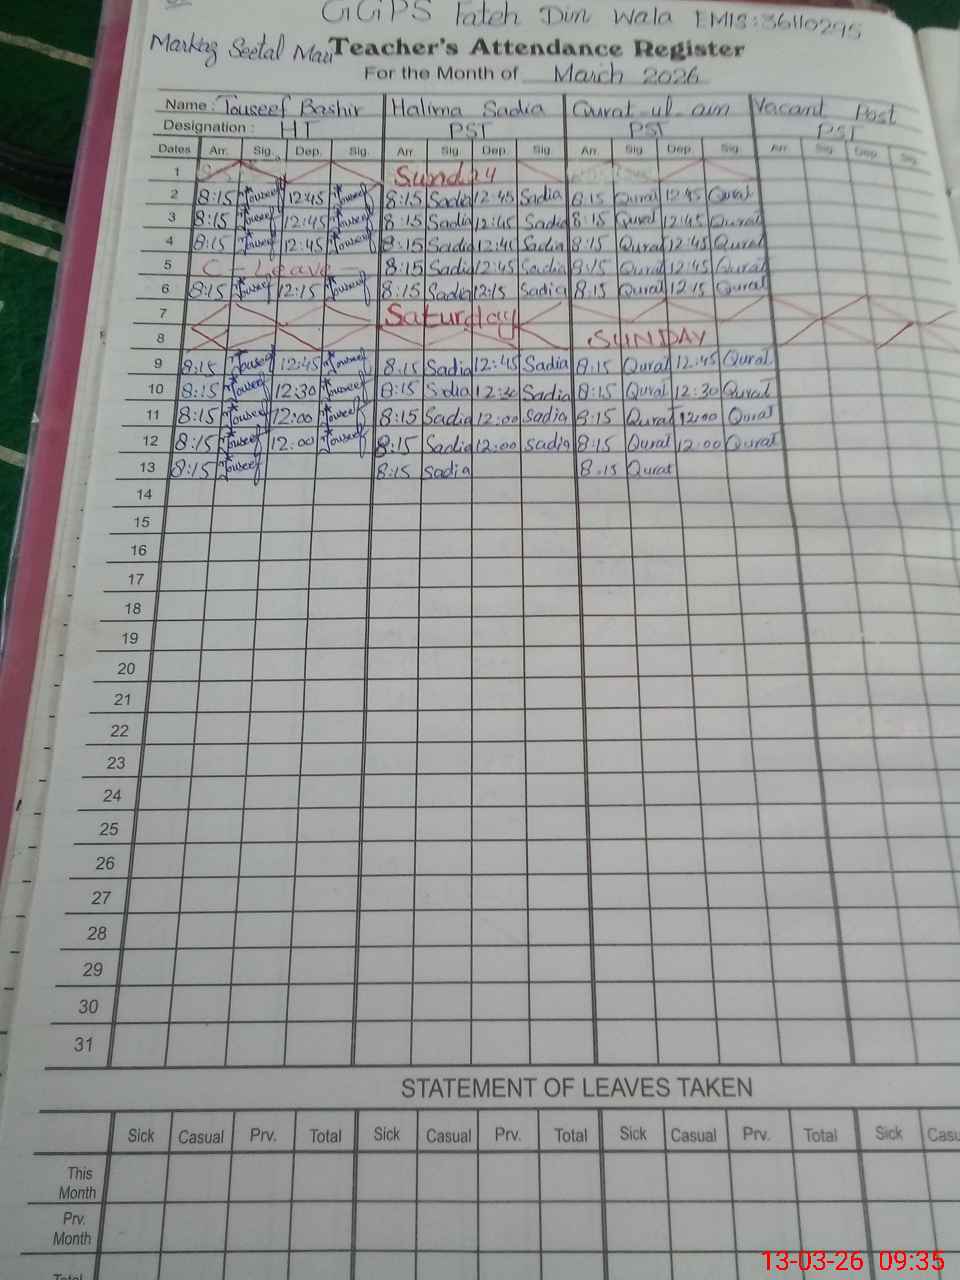 GGPS Fateh Din Wala EMIS:36110295
Teacher's Attendance Register
For the Month of March 2026
Name : Touseef Bashir Halima Sadia Qurat ul ain Vacant Post
Designation : HT PST PST PST
Dates Arr. Sig. Dep. Sig. Arr Sig. Dep. Sig. Arr. Sig. Dep. Sig. Arr Sig. Dep. Sig.
1 Sunday
2 8:15 Touseef 12:45 Touseef 8:15 Sadia 12:45 Sadia 8:15 Qurat 12:45 Qurat
3 8:15 Touseef 12:45 Touseef 8:15 Sadia 12:45 Sadia 8:15 Qurat 12:45 Qurat
4 8:15 Touseef 12:45 Touseef 8:15 Sadia 12:45 Sadia 8:15 Qurat 12:45 Qurat
5 C - Leave 8:15 Sadia 12:45 Sadia 8:15 Qurat 12:45 Qurat
6 8:15 Touseef 12:15 Touseef 8:15 Sadia 12:15 Sadia 8:15 Qurat 12:15 Qurat
7 Saturday
8 SUNDAY
9 8:15 Touseef 12:45 Touseef 8:15 Sadia 12:45 Sadia 8:15 Qurat 12:45 Qurat
10 8:15 Touseef 12:30 Touseef 8:15 Sdia 12:30 Sadia 8:15 Qurat 12:30 Qurat
11 8:15 Touseef 12:00 Touseef 8:15 Sadia 12:00 Sadia 8:15 Qurat 12:00 Qurat
12 8:15 Touseef 12:00 Touseef 8:15 Sadia 12:00 sadia 8:15 Qurat 12:00 Qurat
13 8:15 Touseef 8:15 Sadia 8:15 Qurat
14
15
16
17
18
19
20
21
22
23
24
25
26
27
28
29
30
31
STATEMENT OF LEAVES TAKEN
Sick Casual Prv. Total Sick Casual Prv. Total Sick Casual Prv. Total Sick Casu
This Month
Prv. Month
Total
13-03-26 09:35